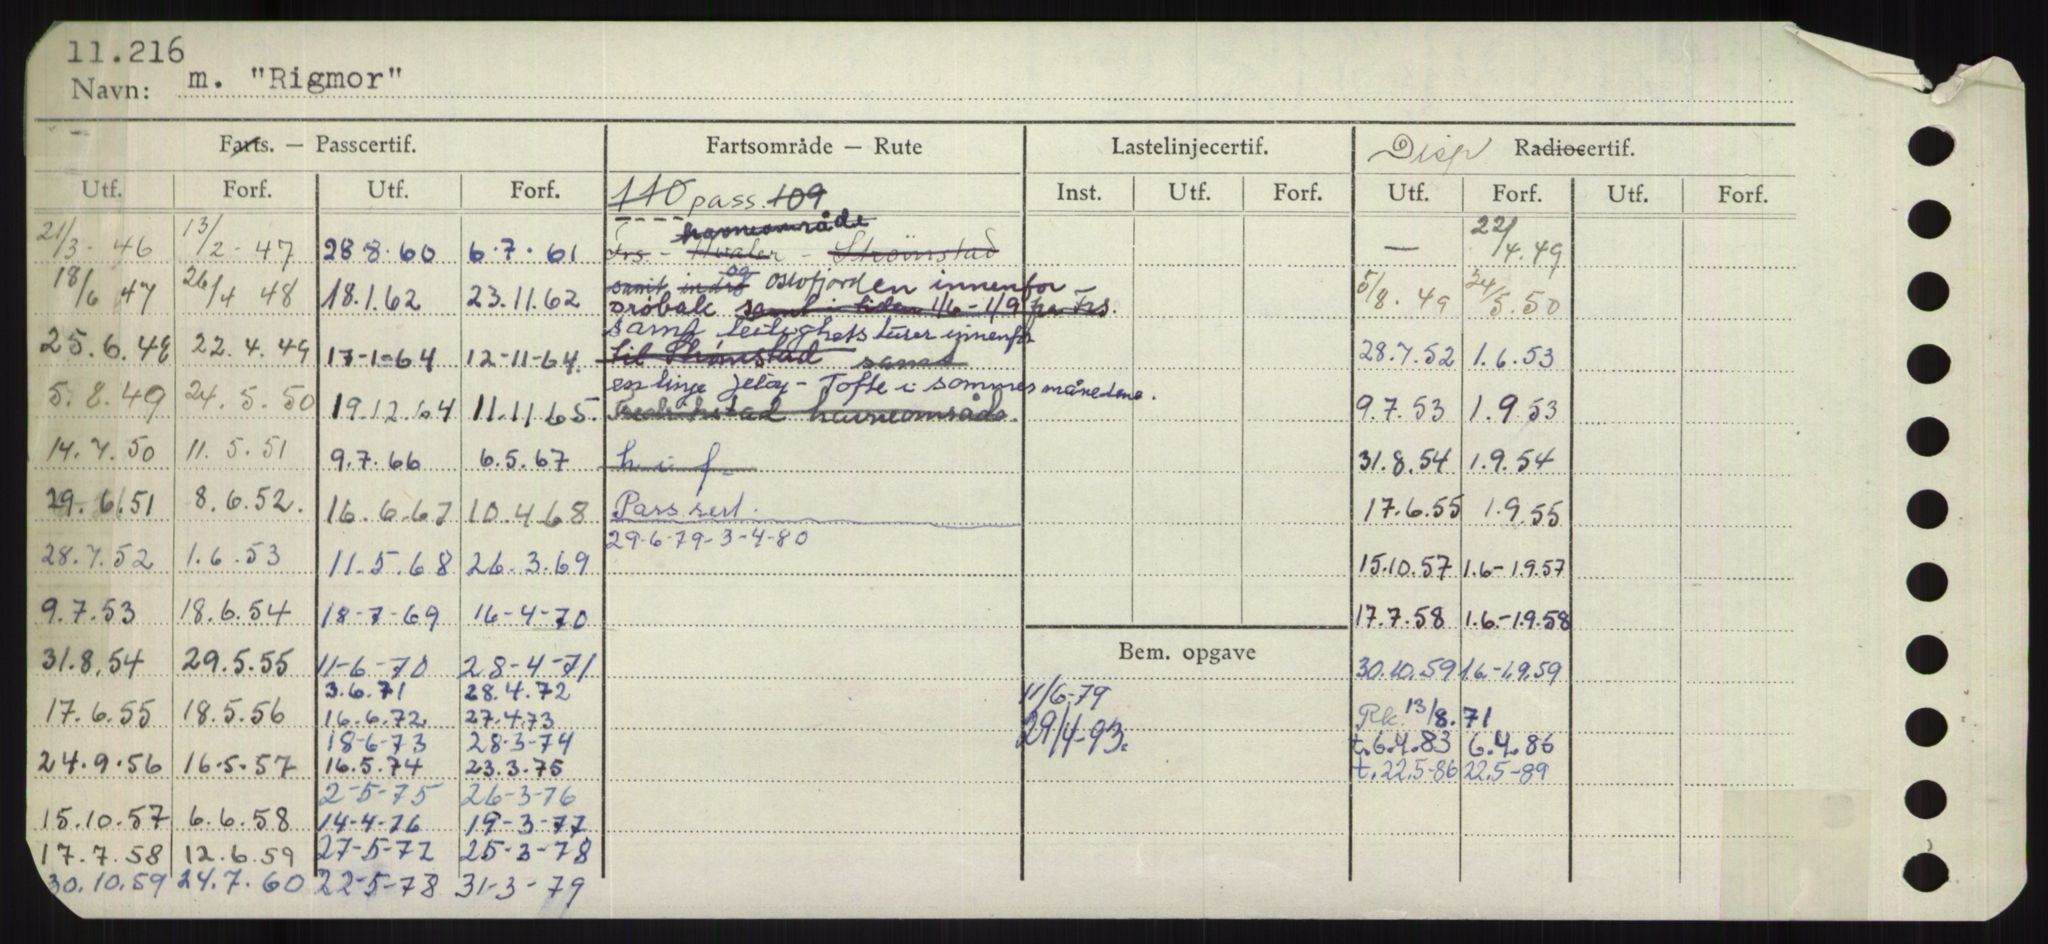 11.216
Navn: m. "Rigmor"
Farts. — Passcertif. Fartsområde — Rute Lastelinjecertif. Disp Radiocertif.
Utf. Forf. Utf. Forf. 110 pass. 109 Inst. Utf. Forf. Utf. Forf. Utf. Forf.
havneområde
21/3-46 13/2-47 28.8.60 6.7.61 Frs - Hvaler - Strömstad — 22/4.49
18/6 47 26/4 48 18.1.62 23.11.62 samt indre og Oslofjorden innenfor 5/8.49 24/5.50
Drøbak samt i tiden 1/6-1/9 fra Frs.
samt leilighetsturer innenfor
25.6.48 22.4.49 17-1-64 12-11-64. til Strömstad samt 28.7.52 1.6.53
en linje Jeløy - Tofte i sommermånedene.
5.8.49 24.5.50 19.12.64 11.11.65. Fredrikstad havneområde. 9.7.53 1.9.53
14.7.50 11.5.51 9.7.66 6.5.67 h i f- 31.8.54 1.9.54
29.6.51 8.6.52. 16.6.67 10.4.68 Pass sert. 17.6.55 1.9.55
29-6-79-3-4-80
28.7.52 1.6.53 11.5.68 26.3.69 15.10.57 1.6-1.9.57
9.7.53 18.6.54 18-7-69 16-4-70 17.7.58 1.6.-1.9.58
31.8.54 29.5.55 11-6-70 28-4-71 Bem. opgave 30.10.59 1.6.-1.9.59
3.6.71 28.4.72 11/6-79
17.6.55 18.5.56 16.6.72. 27.4.73 29/4-93. Rk. 13/8.71
18-6-73 28-3-74 t.6.4.83 6.4.86
24.9.56 16.5.57 16.5.74 23.3.75 t.22.5-86 22.5-89
2-5-75 26-3-76
15.10.57 6.6.58 14-4-76 19-3-77
17.7.58 12.6.59 27-5-77 25-3-78
30.10.59 24.7.60 22-5-78 31-3-79